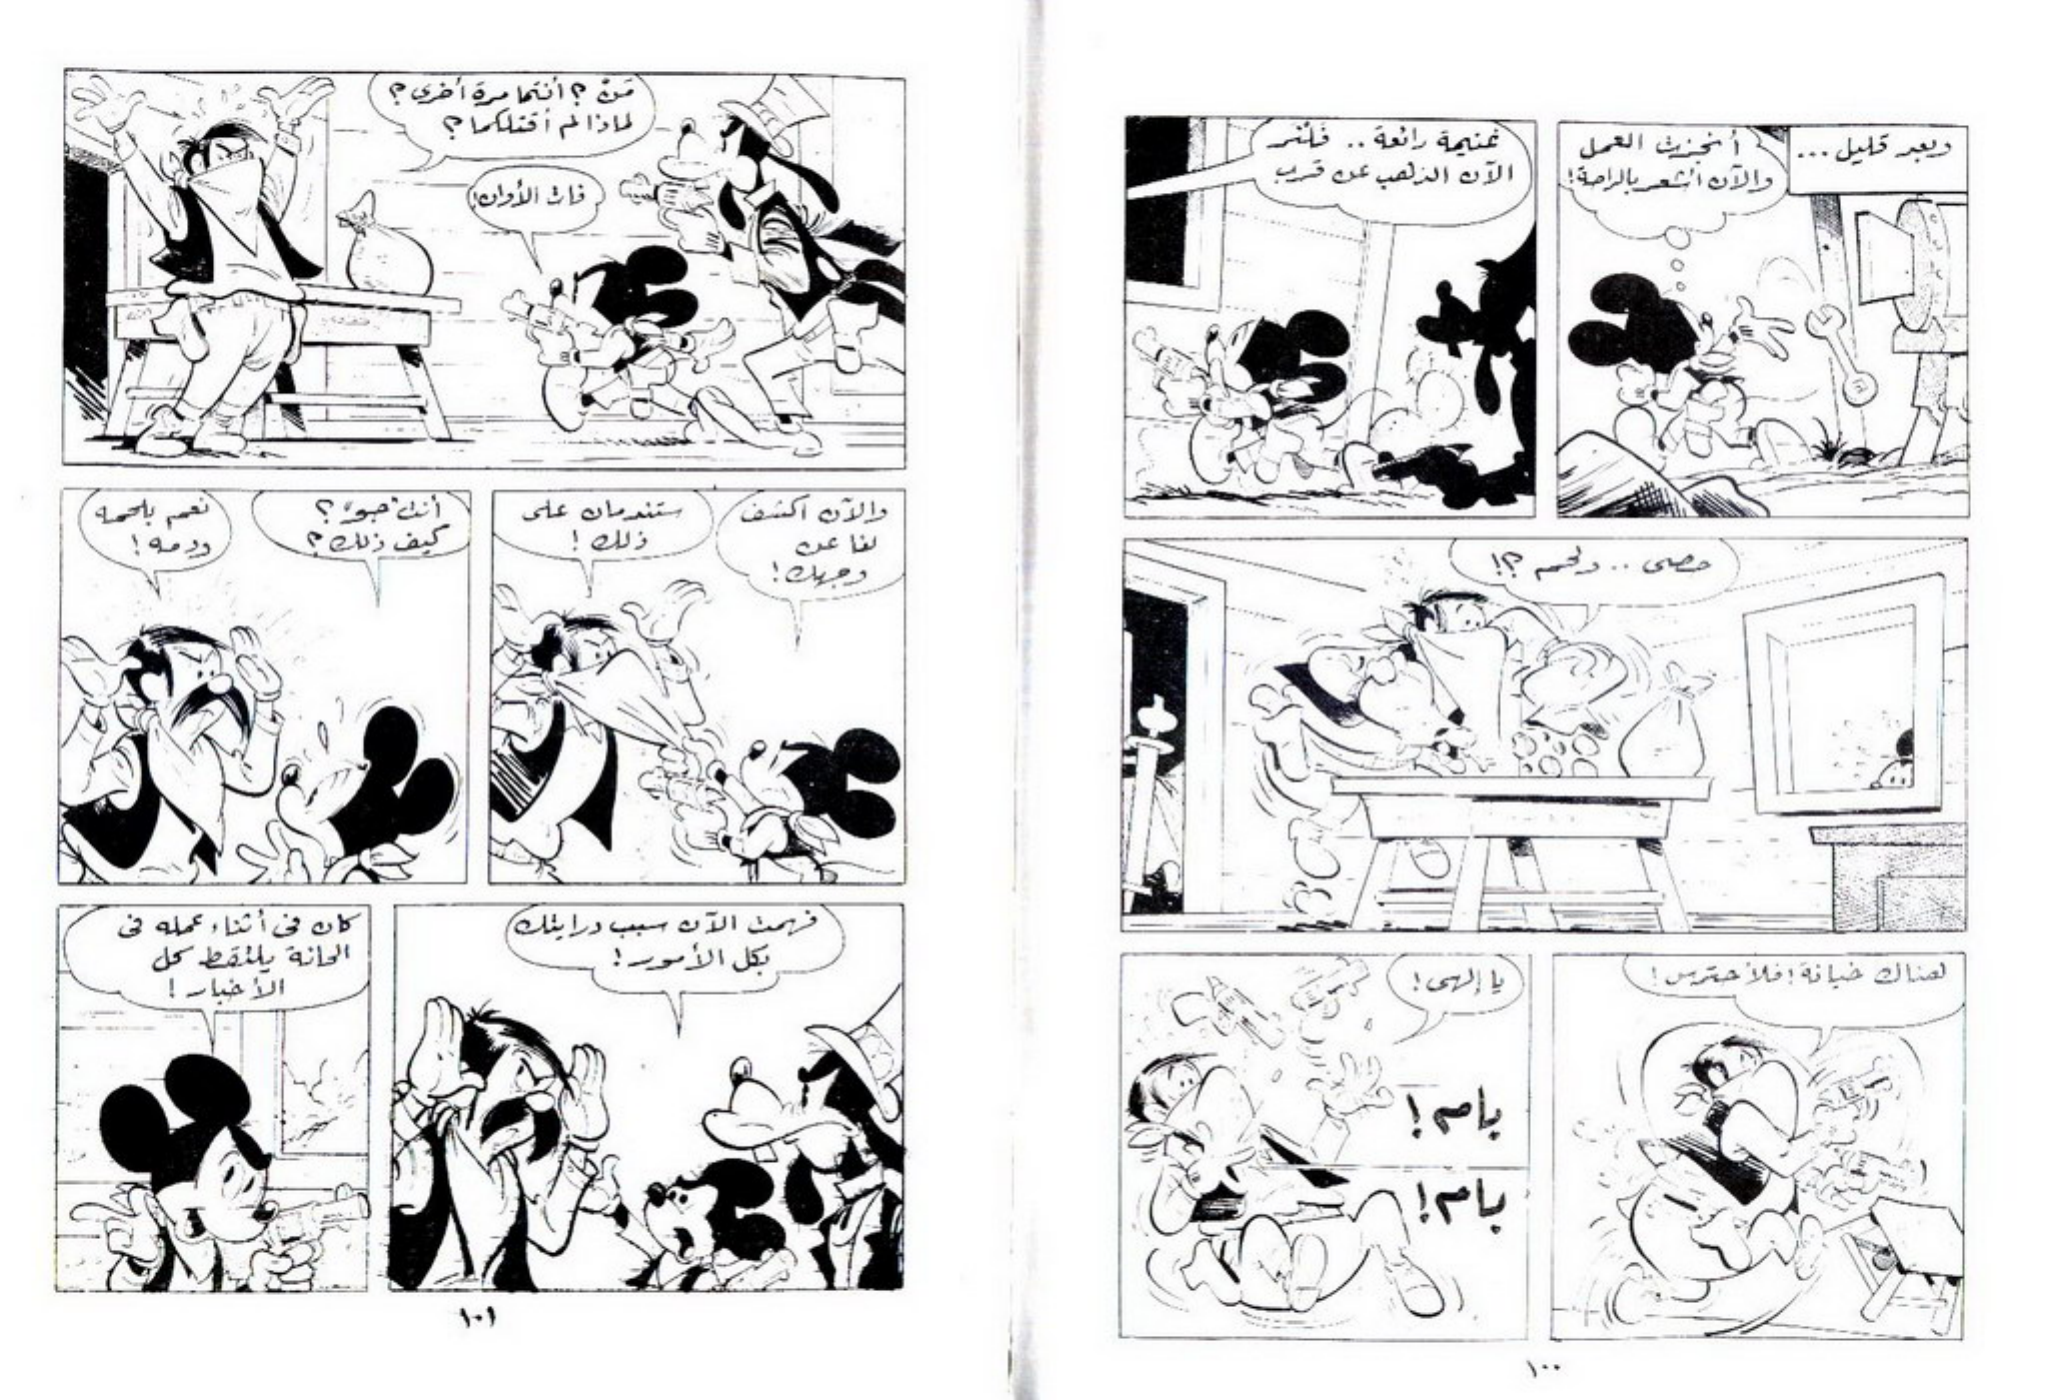 وبعد قليل ...
أنجزت العمل
والآن أشعر بالراحة!
غنيمة رائعة .. فلنر
الآن الذهب عن قرب
حصى .. ولحم ؟!
هناك خيانة! فلأحترس!
يا إلهى!
بام!
بام!
١٠٠
من ؟ أنتما مرة أخرى ؟
لماذا لم أقتلكما ؟
فات الأوان!
والآن اكشف
لنا عن
وجهك!
ستندمان على
ذلك!
أنت "جو" ؟
كيف ذلك ؟
نعم بلحمه
ودمه!
فهمت الآن سبب درايتك
بكل الأمور!
كان فى أثناء عمله فى
الحانة يلتقط كل
الأخبار!
١٠١